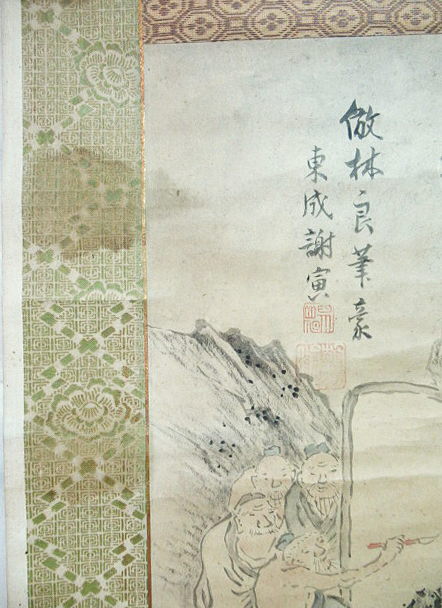 倣林良筆豪
東成謝寅